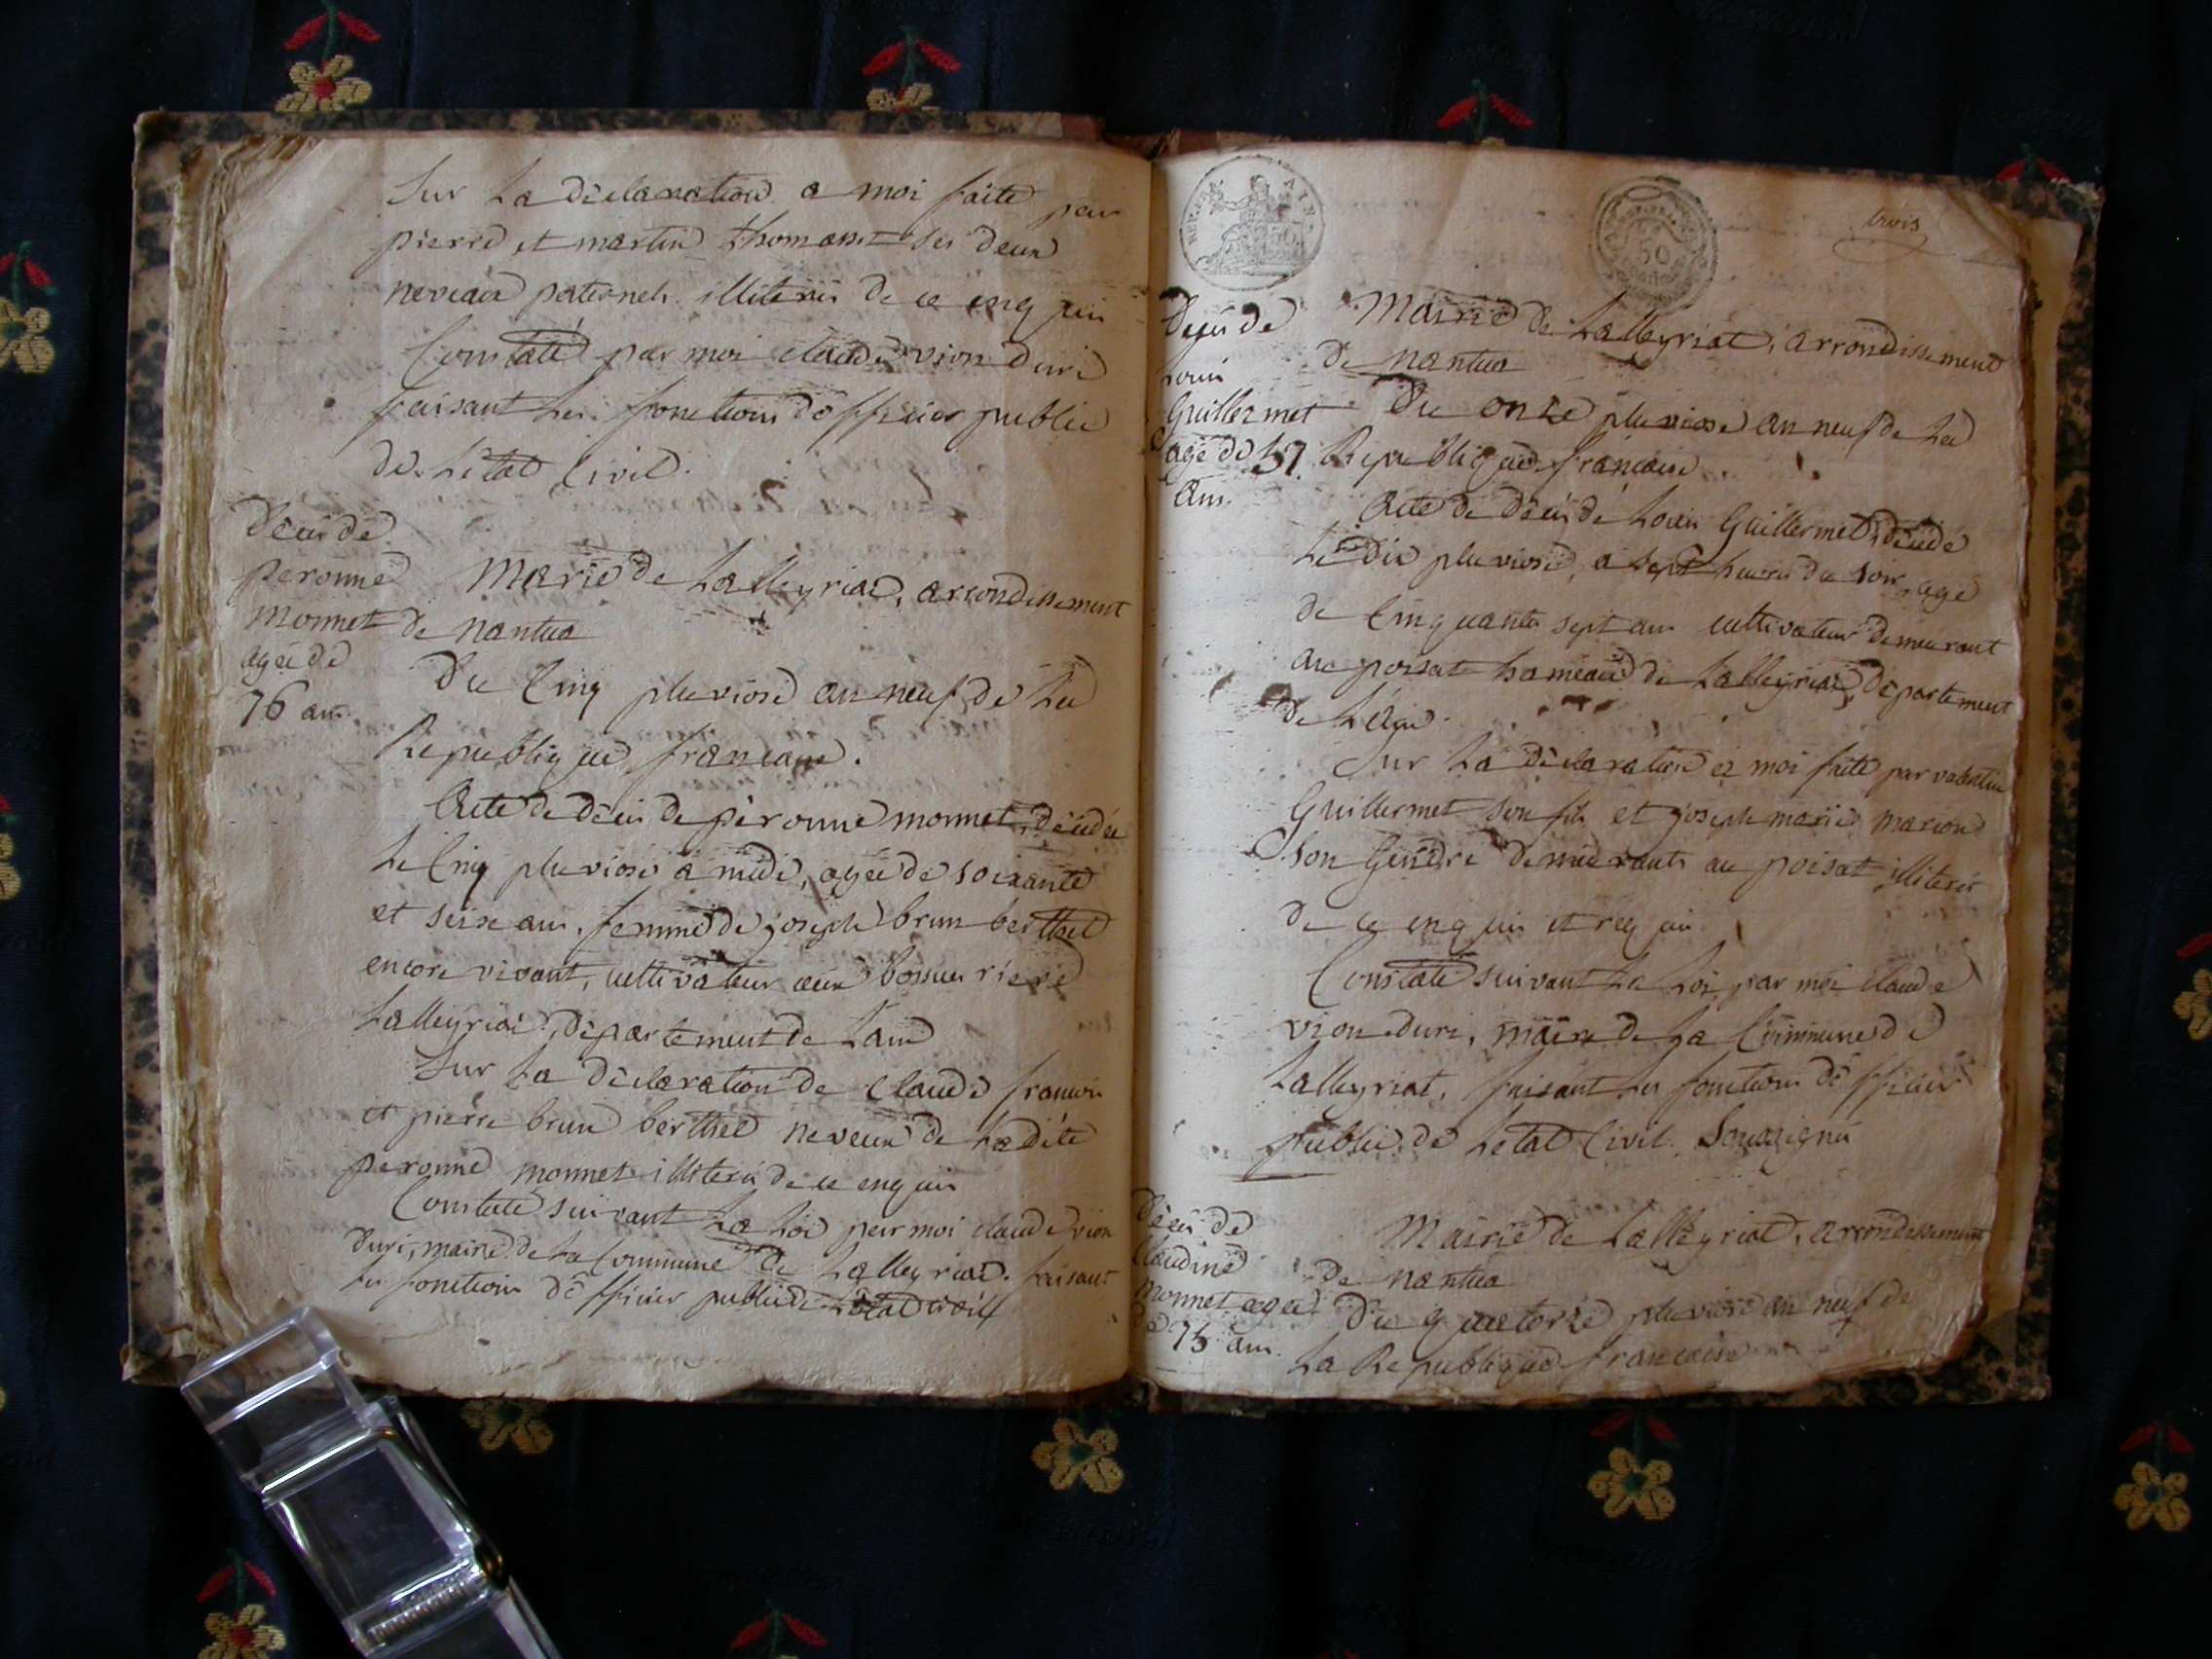 Sur La déclaration a moi faite par
pierre et martin thomasset ses deux
neveux paternels illiterés de ce enquis
Constaté par moi claude vion duri
faisant Les fonctions dé officier public
de L'état Civil.
Décès de
peronne
monnet
agée de
76 ans.
Marie de Lalleyriat, arrondissement
de nantua
Du Cinq pluviose an neuf de La
Republique francaise.
Acte de décès de péronne monnet, décédée
Le Cinq pluviose a midi, agée de soixante
et seize ans, femme de joseph brun berthet
encore vivant, cultivateur aux riere
Lalleyriat, département de Lain
Sur La déclaration de Claude francois
et pierre brun berthet neveux de La dite
peronne monnet illiterés de ce enquis
Constaté suivant La Loi par moi claude vion
duri, maire de La Commune de Lalleyriat. faisant
Les fonctions dé officier public de Létat civil
trois
50
Décès de
Louis
Guillermet
agé de 57
ans.
Mairie de Lalleyriat, arrondissement
de nantua
Du onze pluviose an neuf de La
Republique francaise
Acte de décès de Louis Guillermet, décédé
Le dix pluviose, a sept heures du soir, agé
de Cinquante sept ans cultivateur demeurant
au poisat hameau de Lalleyriat, département
de L'ain.
Sur La déclaration a moi faite par valentin
Guillermet son fils et joseph marie marion
Son Gendre demeurants au poisat illiterés
de ce enquis et requis
Constaté suivant La Loi, par moi claude
vion duri, maire de La Commune de
Lalleyriat, faisant Les fonctions dé officier
public de Létat Civil. Soussigné
Décès de
Claudine
monnet agée
de 75 ans.
Mairie de Lalleyriat, arrondissement
de nantua
Du quatorze pluviose an neuf de
La Republique francaise